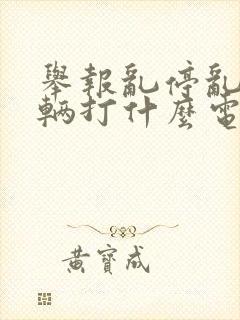 舉報亂停亂
輛打什麼電
黃寶成